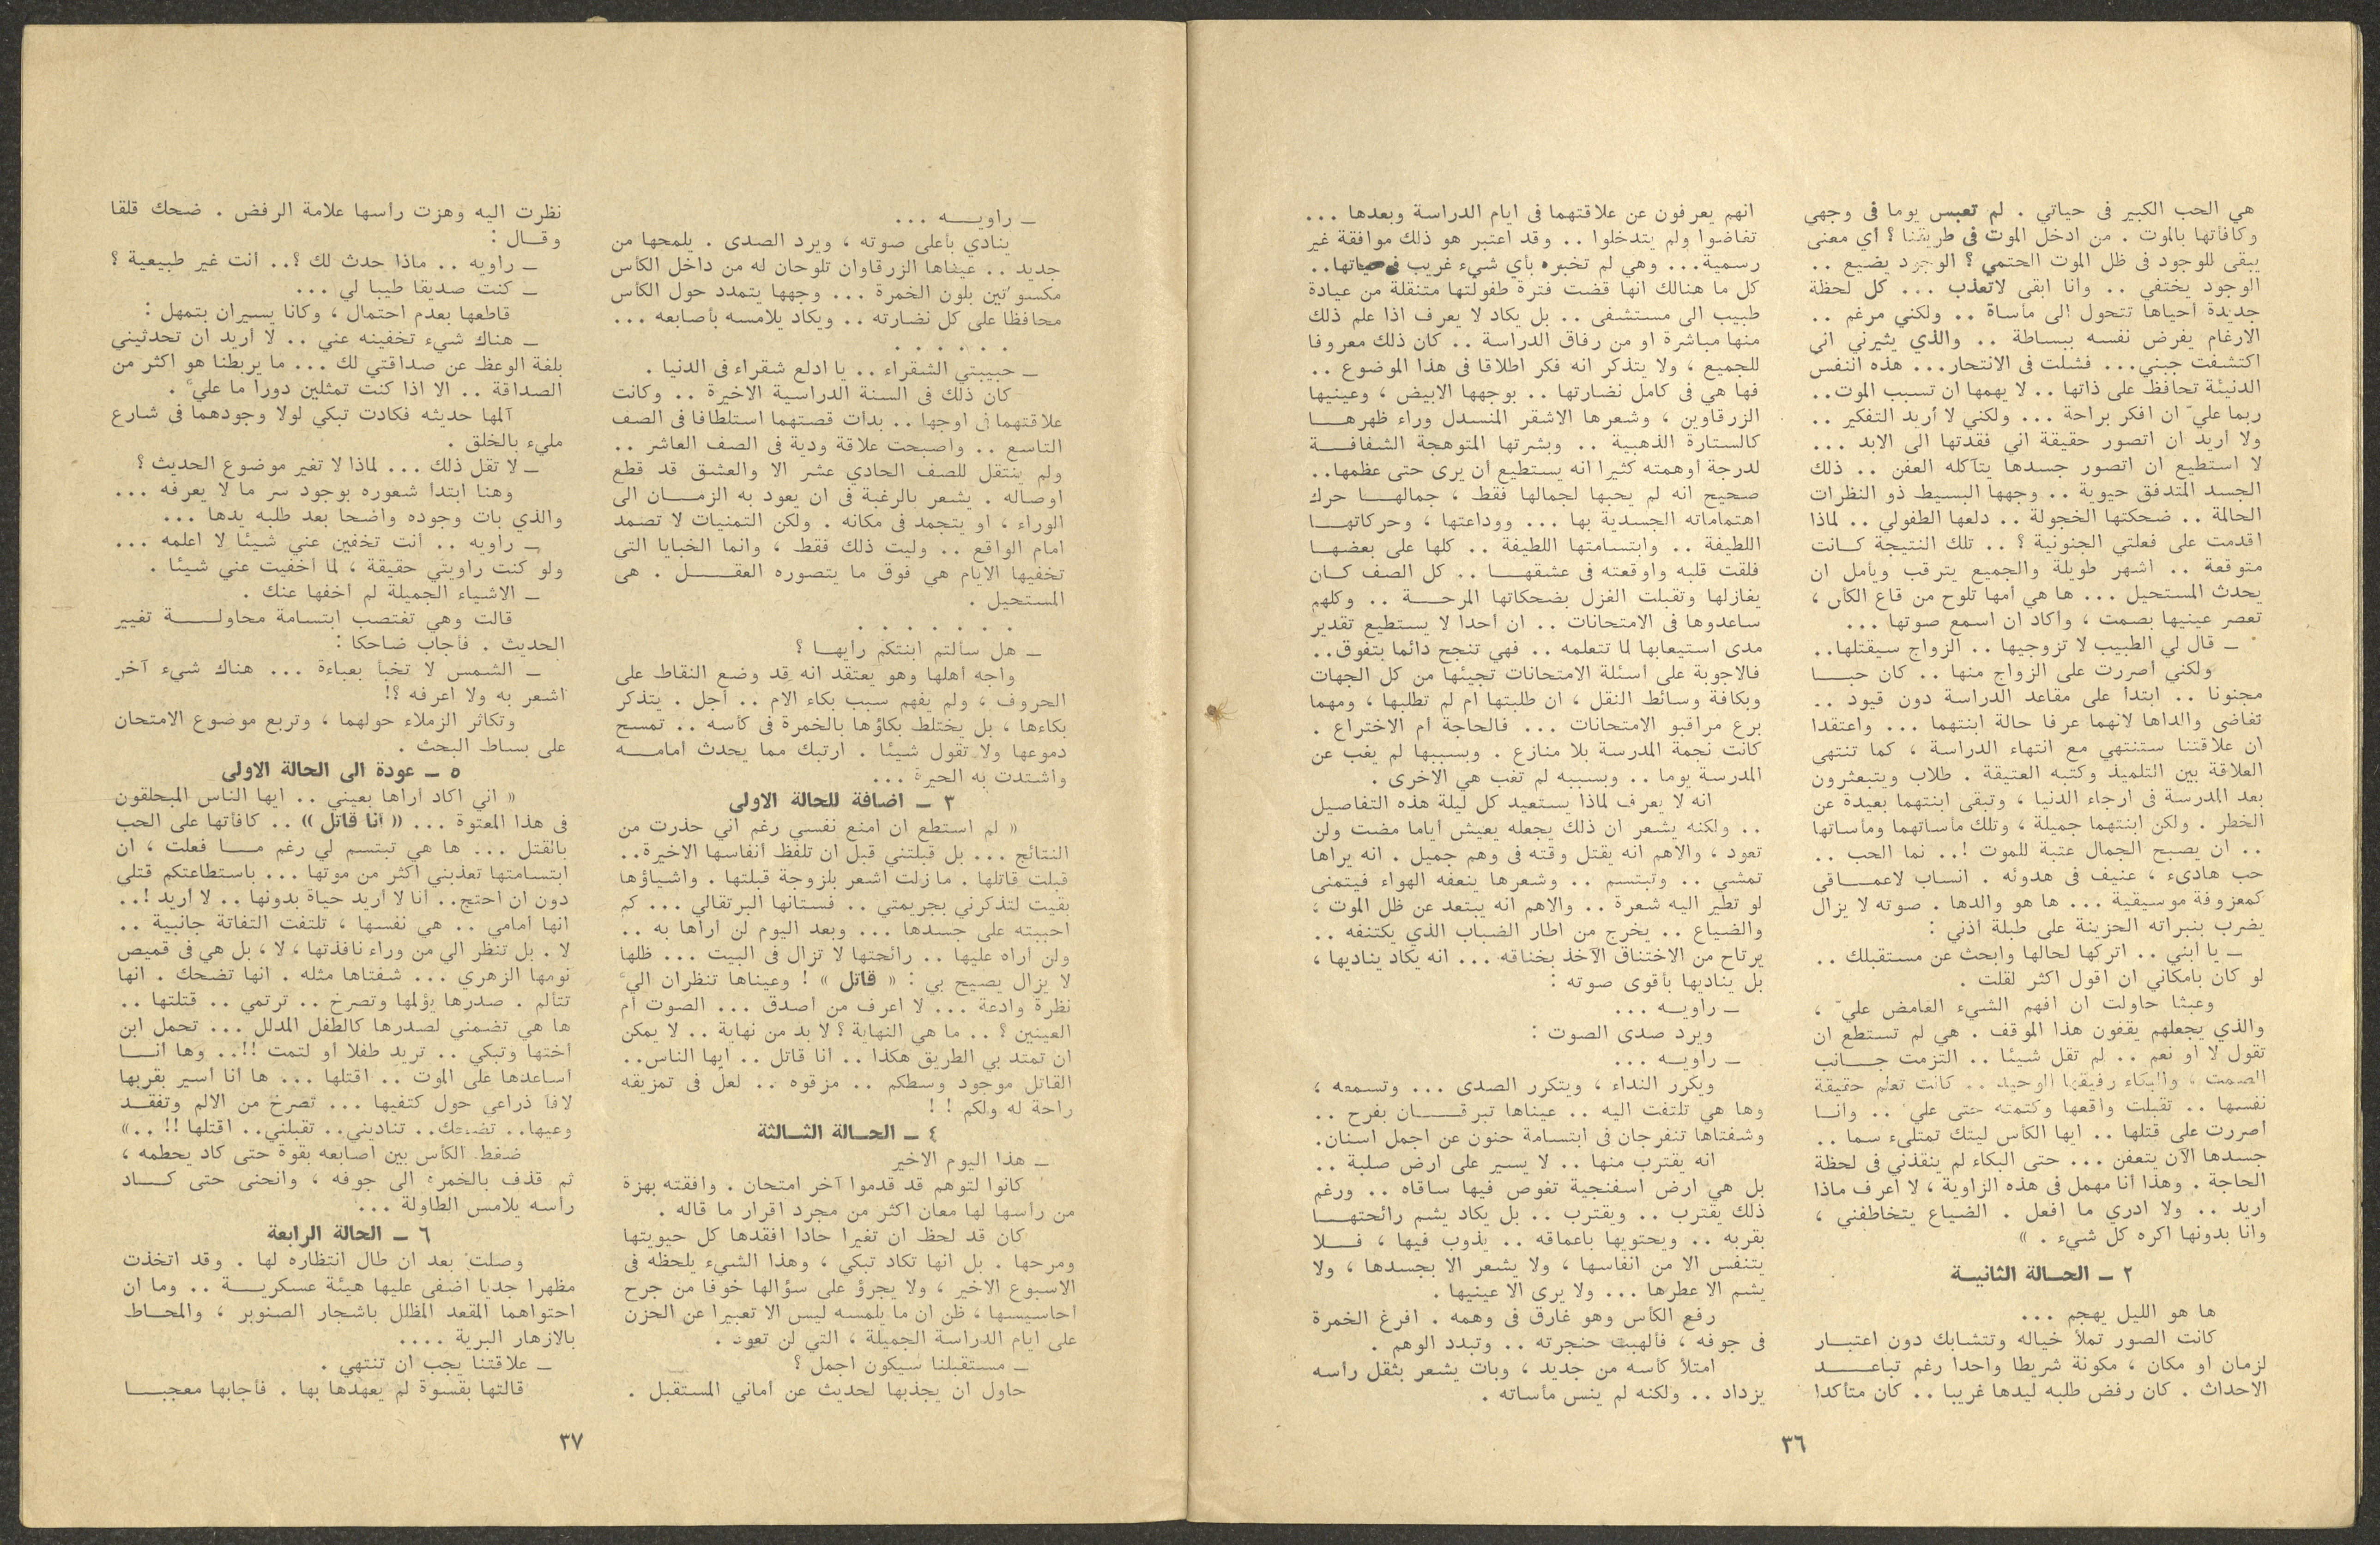 هي الحب الكبير فى حياتي . لم تعبس يوما فى وجهي
وكافأتها بالموت . من ادخل الموت فى طريقنا ؟ أي معنى
يبقى للوجود فى ظل الموت الحتمي ؟ الوجود يضيع ..
الوجود يختفي .. وانا ابقى لاتعذب ... كل لحظة
جديدة احياها تتحول الى مأساة .. ولكني مرغم ..
الارغام يفرض نفسه ببساطة .. والذي يثيرني اني
اكتشفت جبني... فشلت فى الانتحار... هذه النفس
الدنيئة تحافظ على ذاتها .. لا يهمها ان تسبب الموت..
ربما عليّ ان افكر براحة ... ولكني لا أريد التفكير ..
ولا اريد ان اتصور حقيقة اني فقدتها الى الابد ...
لا استطيع ان اتصور جسدها يتآكله العفن .. ذلك
الجسد المتدفق حيوية .. وجهها البسيط ذو النظرات
الحالمة .. ضحكتها الخجولة .. دلعها الطفولي .. لماذا
اقدمت على فعلتي الجنونية ؟ .. تلك النتيجة كـانت
متوقعة .. اشهر طويلة والجميع يترقب ويأمل ان
يحدث المستحيل ... ها هي امها تلوح من قاع الكأس ،
تعصر عينيها بصمت ، واكاد ان اسمع صوتها ...
ـ قال لي الطبيب لا تزوجيها .. الزواج سيقتلها..
ولكني اصررت على الزواج منها .. كان حبـــا
مجنونا .. ابتدأ على مقاعد الدراسة دون قيود ..
تغاضى والداها لانهما عرفا حالة ابنتهما ... واعتقدا
ان علاقتنا ستنتهي مع انتهاء الدراسة ، كما تنتهي
العلاقة بين التلميذ وكتبه العتيقة . طلاب ويتبعثرون
بعد المدرسة فى ارجاء الدنيا ، وتبقى ابنتهما بعيدة عن
الخطر . ولكن ابنتهما جميلة ، وتلك مأساتهما ومأساتها
.. ان يصبح الجمال عتبة للموت !.. نما الحب ..
حب هادىء ، عنيف فى هدوئه . انساب لاعمــاقي
كمعزوفة موسيقية ... ها هو والدها . صوته لا يزال
يضرب بنبراته الحزينة على طبلة اذني :
ـ يا ابني .. اتركها لحالها وابحث عن مستقبلك ..
لو كان بامكاني ان اقول اكثر لقلت .
وعبثا حاولت ان افهم الشيء الغامض عليّ ،
والذي يجعلهم يقفون هذا الموقف . هي لم تستطع ان
تقول لا او نعم .. لم تقل شيئا .. التزمت جــانب
الصمت ، والبكاء رفيقها الوحيد .. كانت تعلم حقيقة
نفسها .. تقبلت واقعها وكتمته حتى علي .. وانـا
اصررت على قتلها .. ايها الكأس ليتك تمتلىء سما ..
جسدها الآن يتعفن ... حتى البكاء لم ينقذني فى لحظة
الحاجة . وهذا انا مهمل فى هذه الزاوية ، لا اعرف ماذا
اريد .. ولا ادري ما افعل . الضياع يتخاطفني ،
وانا بدونها اكره كل شيء . »
٢ ـ الحــالة الثانيــة
ها هو الليل يهجم ...
كانت الصور تملأ خياله وتتشابك دون اعتبــار
لزمان او مكان ، مكونة شريطا واحدا رغم تباعــــد
الاحداث . كان رفض طلبه ليدها غريبا .. كان متأكدا
انهم يعرفون عن علاقتهما فى ايام الدراسة وبعدها ...
تغاضوا ولم يتدخلوا .. وقد اعتبر هو ذلك موافقة غير
رسمية... وهي لم تخبره بأي شيء غريب فى حياتها..
كل ما هنالك انها قضت فترة طفولتها متنقلة من عيادة
طبيب الى مستشفى .. بل يكاد لا يعرف اذا علم ذلك
منها مباشرة او من رفاق الدراسة .. كان ذلك معروفا
للجميع ، ولا يتذكر انه فكر اطلاقا فى هذا الموضوع ..
فها هي فى كامل نضارتها .. بوجهها الابيض ، وعينيها
الزرقاوين ، وشعرها الاشقر المنسدل وراء ظهرهـــا
كالستارة الذهبية .. وبشرتها المتوهجة الشفافــة
لدرجة اوهمته كثيرا انه يستطيع ان يرى حتى عظمها..
صحيح انه لم يحبها لجمالها فقط ، جمالهــا حرك
اهتماماته الجسدية بها ... ووداعتها ، وحركاتهــا
اللطيفة .. وابتسامتها اللطيفة .. كلها على بعضهــا
فلقت قلبه واوقعته فى عشقهــا .. كل الصف كـان
يغازلها وتقبلت الغزل بضحكاتها المرحــة .. وكلهم
ساعدوها فى الامتحانات .. ان أحدا لا يستطيع تقدير
مدى استيعابها لما تتعلمه .. فهي تنجح دائما بتفوق..
فالاجوبة على اسئلة الامتحانات تجيئها من كل الجهات
وبكافة وسائط النقل ، ان طلبتها ام لم تطلبها ، ومهما
برع مراقبو الامتحانات ... فالحاجة ام الاختراع .
كانت نجمة المدرسة بلا منازع . وبسببها لم يغب عن
المدرسة يوما .. وبسببه لم تغب هي الاخرى .
انه لا يعرف لماذا يستعيد كل ليلة هذه التفاصيل
.. ولكنه يشعر ان ذلك يجعله يعيش اياما مضت ولن
تعود ، والاهم انه يقتل وقته فى وهم جميل . انه يراها
تمشي .. وتبتسم .. وشعرها ينعفه الهواء فيتمنى
لو تطير اليه شعرة .. والاهم انه يبتعد عن ظل الموت ،
والضياع .. يخرج من اطار الضباب الذي يكتنفه ..
يرتاح من الاختناق الآخذ بخناقه ... انه يكاد يناديها ،
بل يناديها بأقوى صوته :
ـ راويــه ...
ويرد صدى الصوت :
ـ راويــه ...
ويكرر النداء ، ويتكرر الصدى ... وتسمعه ،
وها هي تلتفت اليه .. عيناها تبرقــــان بفرح ..
وشفتاها تنفرجان فى ابتسامة حنون عن اجمل اسنان.
انه يقترب منها .. لا يسير على ارض صلبة ..
بل هي ارض اسفنجية تغوص فيها ساقاه .. ورغم
ذلك يقترب .. ويقترب .. بل يكاد يشم رائحتهــا
بقربه .. ويحتويها باعماقه .. يذوب فيها ، فــلا
يتنفس الا من انفاسها ، ولا يشعر الا بجسدها ، ولا
يشم الا عطرها ... ولا يرى الا عينيها .
رفع الكأس وهو غارق فى وهمه . افرغ الخمرة
فى جوفه ، فألهبت حنجرته .. وتبدد الوهم .
امتلأ كأسه من جديد ، وبات يشعر بثقل رأسه
يزداد .. ولكنه لم ينس مأساته .
٣٦
ـ راويــــه ...
ينادي بأعلى صوته ، ويرد الصدى . يلمحها من
جديد .. عيناها الزرقاوان تلوحان له من داخل الكأس
مكسوّتين بلون الخمرة ... وجهها يتمدد حول الكأس
محافظا على كل نضارته .. ويكاد يلامسه بأصابعه ...
. . . . . .
ـ حبيبتي الشقراء .. يا ادلع شقراء فى الدنيا .
كان ذلك فى السنة الدراسية الاخيرة .. وكانت
علاقتهما فى اوجها .. بدأت قصتهما استلطافا فى الصف
التاسع .. واصبحت علاقة ودية فى الصف العاشر ..
ولم ينتقل للصف الحادي عشر الا والعشق قد قطع
اوصاله . يشعر بالرغبة فى ان يعود به الزمــان الى
الوراء ، او يتجمد فى مكانه . ولكن التمنيات لا تصمد
امام الواقع .. وليت ذلك فقط ، وانما الخبايا التى
تخفيها الايام هي فوق ما يتصوره العقـــل . هى
المستحيل .
. . . . . . .
ـ هل سألتم ابنتكم رأيهــا ؟
واجه أهلها وهو يعتقد انه قد وضع النقاط على
الحروف ، ولم يفهم سبب بكاء الام .. أجل . يتذكر
بكاءها ، بل يختلط بكاؤها بالخمرة فى كأسه .. تمسح
دموعها ولا تقول شيئا . ارتبك مما يحدث امامــه
واشتدت به الحيرة ...
٣ ـ اضافة للحالة الاولى
« لم استطع ان امنع نفسي رغم اني حذرت من
النتائج ... بل قبلتني قبل ان تلفظ أنفاسها الاخيرة..
قبلت قاتلها . ما زلت اشعر بلزوجة قبلتها . واشياؤها
بقيت لتذكرني بجريمتي .. فستانها البرتقالي ... كم
احببته على جسدها ... وبعد اليوم لن اراها به ..
ولن اراه عليها .. رائحتها لا تزال فى البيت ... ظلها
لا يزال يصيح بي : « قاتل » ! وعيناها تنظران اليّ
نظرة وادعة ... لا اعرف من اصدق ... الصوت ام
العينين ؟ .. ما هي النهاية ؟ لا بد من نهاية .. لا يمكن
ان تمتد بي الطريق هكذا .. انا قاتل .. ايها الناس..
القاتل موجود وسطكم .. مزقوه .. لعل فى تمزيقه
راحة له ولكم ! !
٤ ـ الحــالة الثــالثة
ـ هذا اليوم الاخير
كانوا لتوهم قد قدموا آخر امتحان . وافقته بهزة
من رأسها لها معان اكثر من مجرد اقرار ما قاله .
كان قد لحظ ان تغيرا حادا افقدها كل حيويتها
ومرحها . بل انها تكاد تبكي ، وهذا الشيء يلحظه فى
الاسبوع الاخير ، ولا يجرؤ على سؤالها خوفا من جرح
احاسيسها ، ظن ان ما يلمسه ليس الا تعبيرا عن الحزن
على ايام الدراسة الجميلة ، التي لن تعود .
ـ مستقبلنا سيكون اجمل ؟
حاول ان يجذبها لحديث عن أماني المستقبل .
نظرت اليه وهزت رأسها علامة الرفض . ضحك قلقا
وقــال :
ـ راويه .. ماذا حدث لك ؟.. انت غير طبيعية ؟
ـ كنت صديقا طيبا لي ...
قاطعها بعدم احتمال ، وكانا يسيران بتمهل :
ـ هناك شيء تخفينه عني .. لا أريد ان تحدثيني
بلغة الوعظ عن صداقتي لك ... ما يربطنا هو اكثر من
الصداقة .. الا اذا كنت تمثلين دورا ما عليّ .
آلمها حديثه فكادت تبكي لولا وجودهما فى شارع
مليء بالخلق .
ـ لا تقل ذلك ... لماذا لا تغير موضوع الحديث ؟
وهنا ابتدأ شعوره بوجود سر ما لا يعرفه ...
والذي بات وجوده واضحا بعد طلبه يدها ...
ـ راويه .. أنت تخفين عني شيئا لا اعلمه ...
ولو كنت راويتي حقيقة ، لما اخفيت عني شيئا .
ـ الاشياء الجميلة لم أخفها عنك .
قالت وهي تغتصب ابتسامة محاولـــــة تغيير
الحديث . فأجاب ضاحكا :
ـ الشمس لا تخبأ بعباءة ... هناك شيء آخر
اشعر به ولا اعرفه ؟!
وتكاثر الزملاء حولهما ، وتربع موضوع الامتحان
على بساط البحث .
٥ ـ عودة الى الحالة الاولى
« اني اكاد اراها بعيني .. ايها الناس المبحلقون
فى هذا المعتوة ... « أنا قاتل » .. كافأتها على الحب
بالقتل ... ها هي تبتسم لي رغم مــا فعلت ، ان
ابتسامتها تعذبني اكثر من موتها ... باستطاعتكم قتلي
دون ان احتج.. انا لا أريد حياة بدونها .. لا أريد !..
انها أمامي .. هي نفسها ، تلتفت التفاتة جانبية ..
لا . بل تنظر الي من وراء نافذتها ، لا ، بل هي فى قميص
نومها الزهري ... شفتاها مثله . انها تضحك . انها
تتألم . صدرها يؤلمها وتصرخ .. ترتمي .. قتلتها ..
ها هي تضمني لصدرها كالطفل المدلل ... تحمل ابن
اختها وتبكي .. تريد طفلا او لتمت !!.. وها انــا
اساعدها على الموت .. اقتلها ... ها أنا اسير بقربها
لافا ذراعي حول كتفيها ... تصرخ من الالم وتفقــد
وعيها.. تضحك.. تناديني.. تقبلني.. اقتلها !! ..»
ضغط الكأس بين اصابعه بقوة حتى كاد يحطمه ،
ثم قذف بالخمرة الى جوفه ، وانحنى حتى كــاد
رأسه يلامس الطاولة ...
٦ ـ الحالة الرابعة
وصلت بعد ان طال انتظاره لها . وقد اتخذت
مظهرا جديا اضفى عليها هيئة عسكريــــة .. وما ان
احتواهما المقعد المظلل باشجار الصنوبر ، والمحــاط
بالازهار البرية ....
ـ علاقتنا يجب ان تنتهي .
قالتها بقسوة لم يعهدها بها . فأجابها معجبــا
٣٧